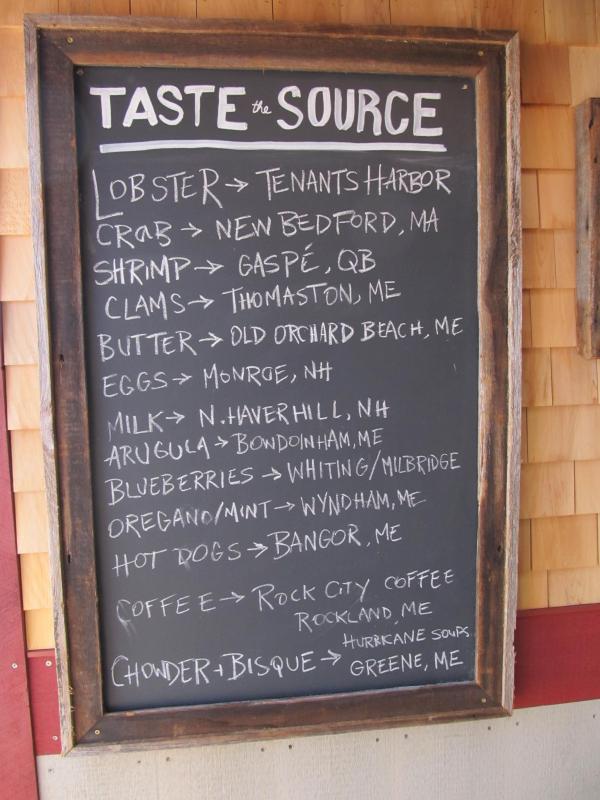 TASTE the SOURCE
LOBSTER → TENANTS HARBOR
CRAB → NEW BEDFORD, MA
SHRIMP → GASPÉ, QB
CLAMS → THOMASTON, ME
BUTTER → OLD ORCHARD BEACH, ME
EGGS → MONROE, NH
MILK → N. HAVERHILL, NH
ARUGULA → BOWDOINHAM, ME
BLUEBERRIES → WHITING/MILBRIDGE
OREGANO/MINT → WYNDHAM, ME
HOT DOGS → BANGOR, ME
COFFEE → ROCK CITY COFFEE
ROCKLAND, ME
HURRICANE SOUPS
CHOWDER + BISQUE → GREENE, ME